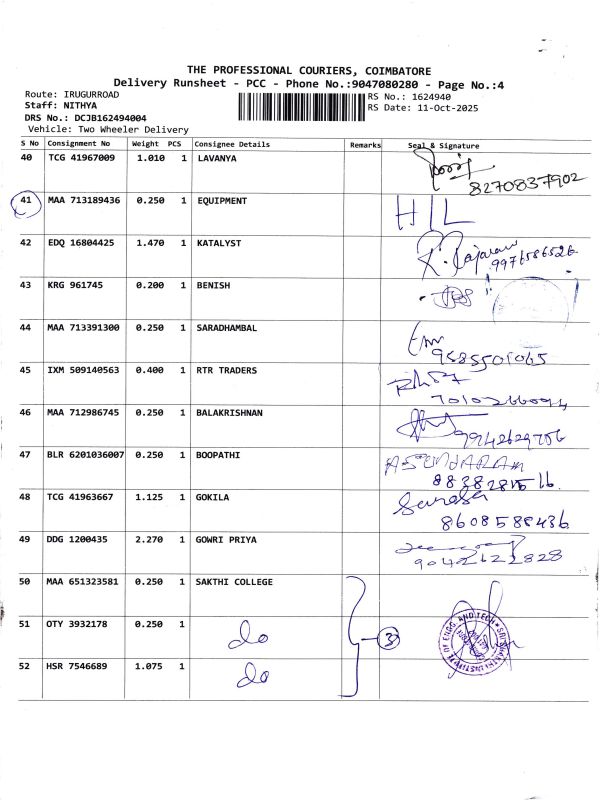 THE PROFESSIONAL COURIERS, COIMBATORE
Delivery Runsheet - PCC - Phone No.:9047080280 - Page No.:4
Route: IRUGURROAD
Staff: NITHYA
DRS No.: DCJB162494004
Vehicle: Two Wheeler Delivery
RS No.: 1624940
RS Date: 11-Oct-2025
S No Consignment No Weight PCS Consignee Details Remarks Seal & Signature
40 TCG 41967009 1.010 1 LAVANYA
8270837902
41 MAA 713189436 0.250 1 EQUIPMENT HIL
42 EDQ 16804425 1.470 1 KATALYST R. Rajaram
9976586526
43 KRG 961745 0.200 1 BENISH
44 MAA 713391300 0.250 1 SARADHAMBAL
9585501065
45 IXM 509140563 0.400 1 RTR TRADERS
46 MAA 712986745 0.250 1 BALAKRISHNAN
47 BLR 6201036007 0.250 1 BOOPATHI
48 TCG 41963667 1.125 1 GOKILA
8608588436
49 DDG 1200435 2.270 1 GOWRI PRIYA
9042622828
50 MAA 651323581 0.250 1 SAKTHI COLLEGE
51 OTY 3932178 0.250 1 do 3
52 HSR 7546689 1.075 1 do